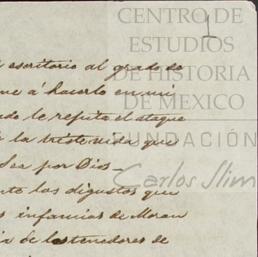 CENTRO DE
ESTUDIOS
DE HISTORIA
DE MEXICO
FUNDACIÓN
Carlos Slim
1
escritorio al grado de
me á hacerlo en mi
do le refuta el ataque
la triste vida que
Sea por Dios
los disgustos que
infamias de Moran
de los tenedores de